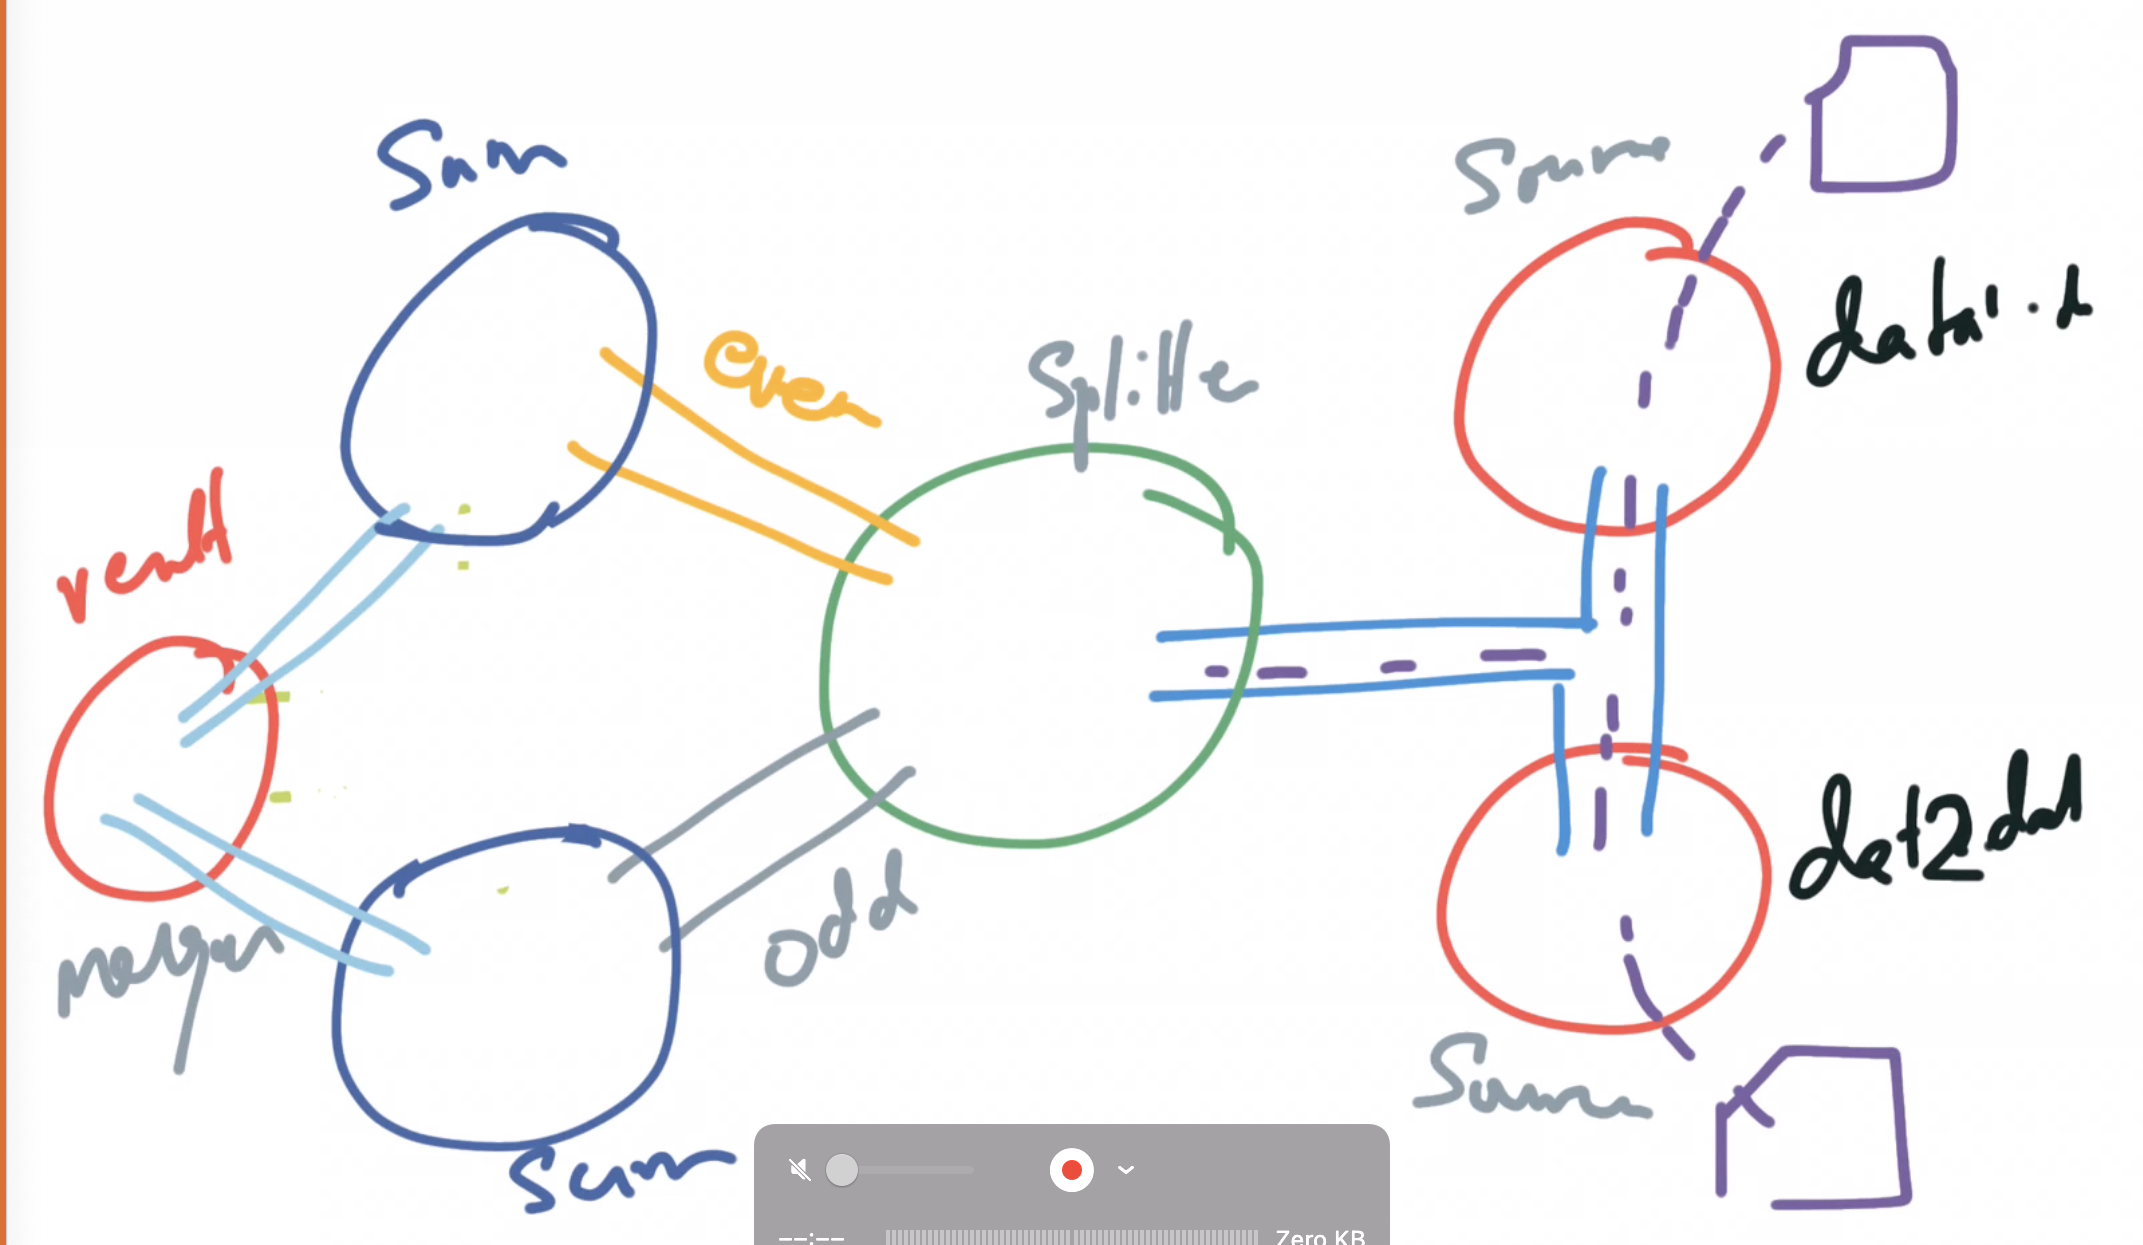 Sum
even
Splitter
Source
data1.d
result
merger
odd
dat2.dat
Source
Sum
--:--
Zero KB